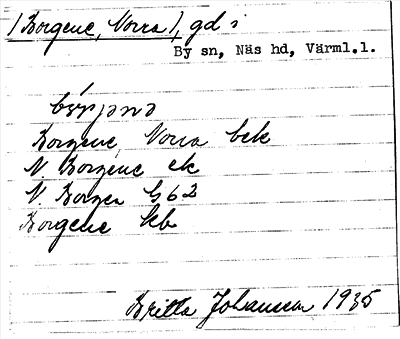 [Borgene, Norra], gd i
By sn, Näs hd, Värml.l.
Borgene, Norra bek
N Borgene ek
N Borgen G62
Borgene kb
Britta Johansson 1935